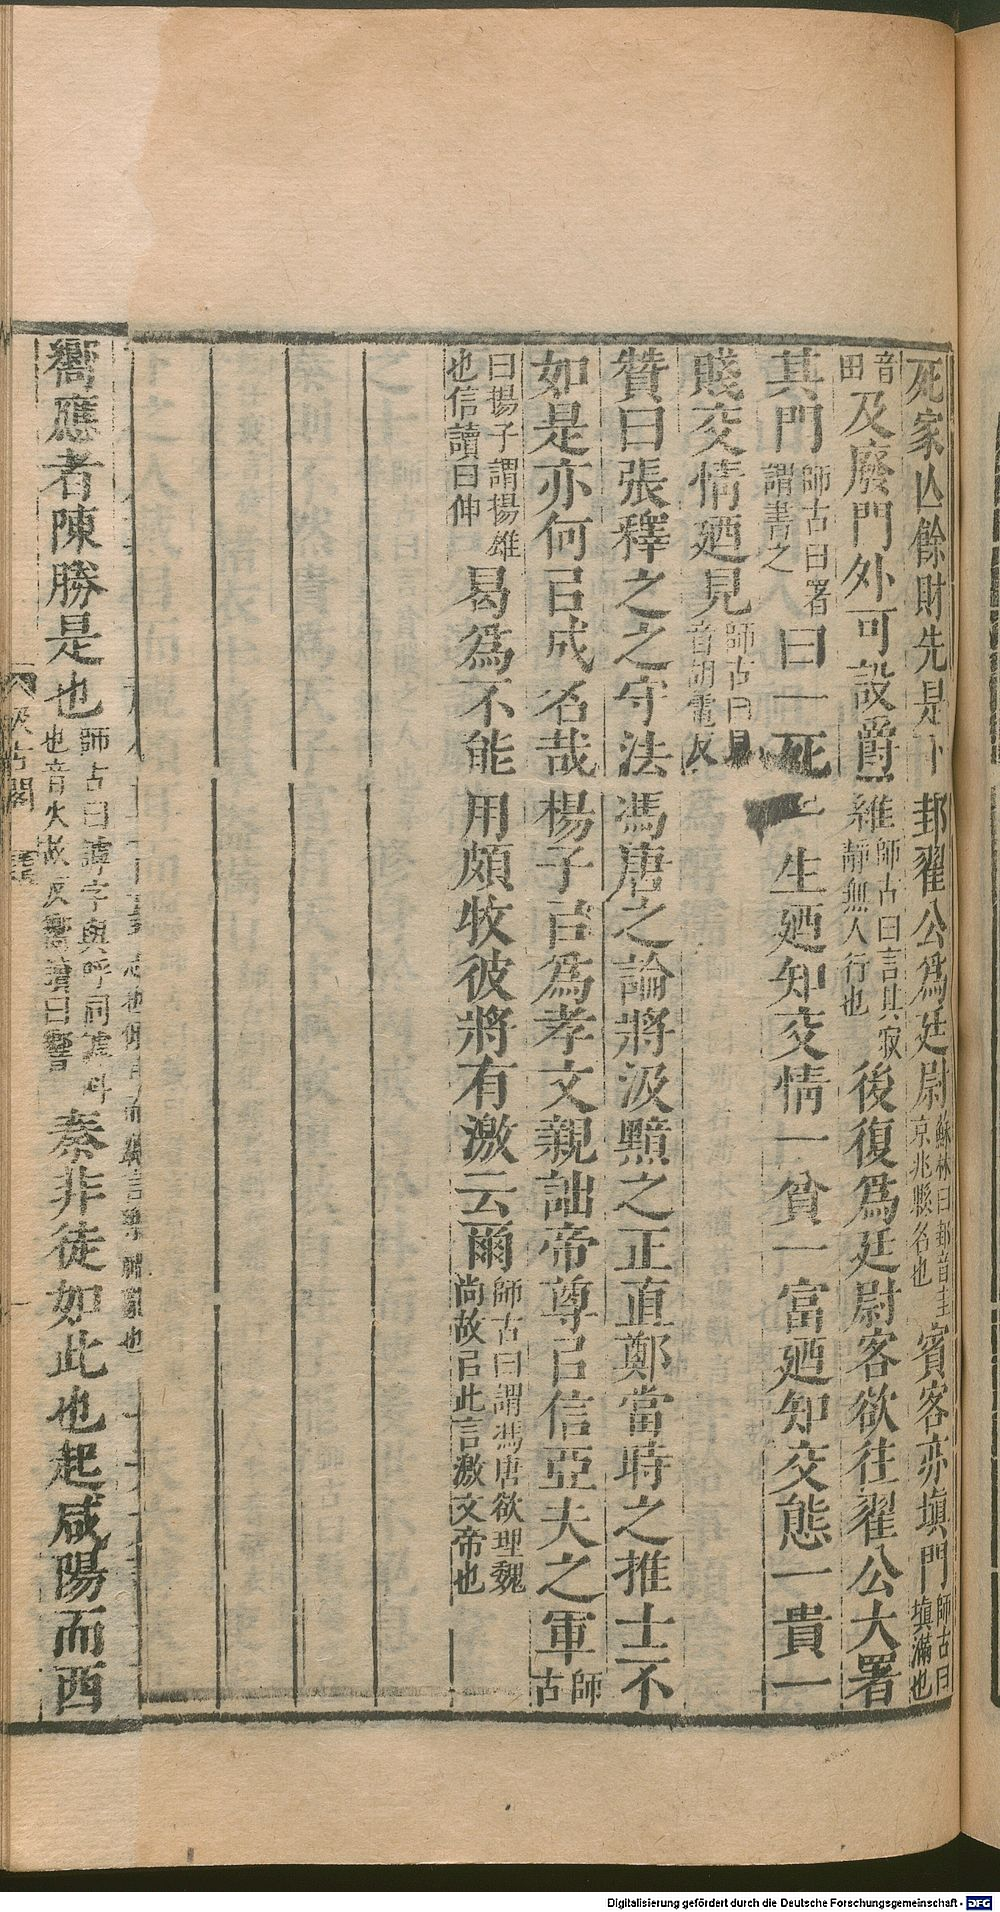 死家亾餘財先是下邽翟公爲廷尉蘇林曰邽音圭京兆縣名也賓客亦塡門師古曰塡滿也
音田及廢門外可設爵羅師古曰言其寂靜無人行也後復爲廷尉客欲往翟公大署
其門師古曰署謂書之曰一死一生廼知交情一貧一富廼知交態一貴一
賤交情廼見師古曰見音胡電反
贊曰張釋之之守法馮唐之論將汲黯之正直鄭當時之推士不
如是亦何㠯成名哉楊子㠯爲孝文親詘帝尊㠯信亞夫之軍師古
曰揚子謂揚雄也信讀曰伸曷爲不能用頗牧彼將有激云爾師古曰謂馮唐欲理魏尚故㠯此言激文帝也
嚮應者陳勝是也師古曰謼字與呼同謼叫也音火故反嚮讀曰響秦非徒如此也起咸陽而西
汲古閣
Digitalisierung gefördert durch die Deutsche Forschungsgemeinschaft - DFG